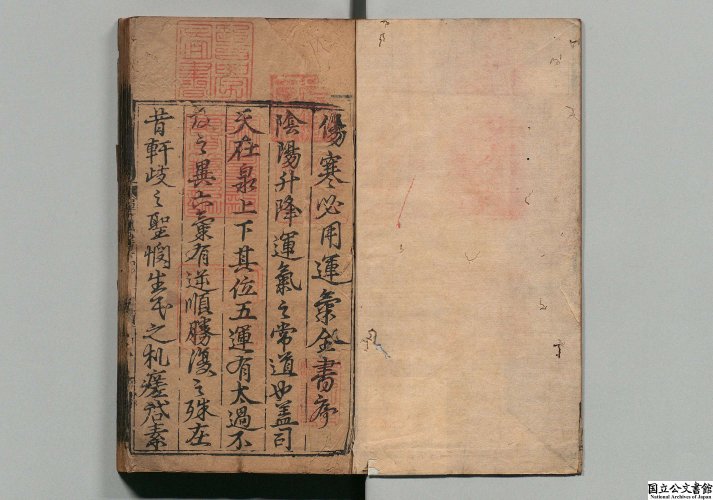 傷寒必用運氣全書序
陰陽升降運氣之常道也盖司
天在泉上下其位五運有太過不
及之異六氣有逆順勝復之殊在
昔軒歧之聖憫生民之札瘥啓素
国立公文書館
National Archives of Japan